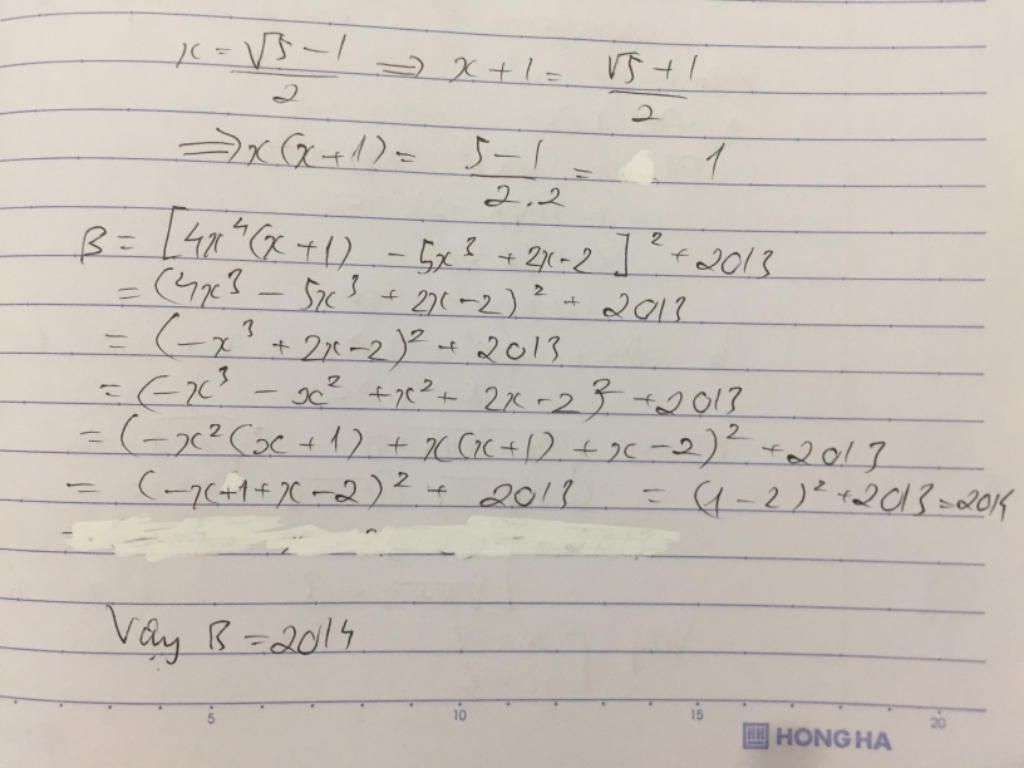 x = (√5 − 1)/2 ⇒ x + 1 = (√5 + 1)/2
⇒ x(x+1) = (5 − 1)/(2.2) = 1
B = [4x⁴(x+1) − 5x³ + 2x − 2]² + 2013
= (4x³ − 5x³ + 2x − 2)² + 2013
= (−x³ + 2x − 2)² + 2013
= (−x³ − x² + x² + 2x − 2)² + 2013
= (−x²(x+1) + x(x+1) + x − 2)² + 2013
= (−x + 1 + x − 2)² + 2013 = (1 − 2)² + 2013 = 2014
Vậy B = 2014
5 10 15 20
HONG HA